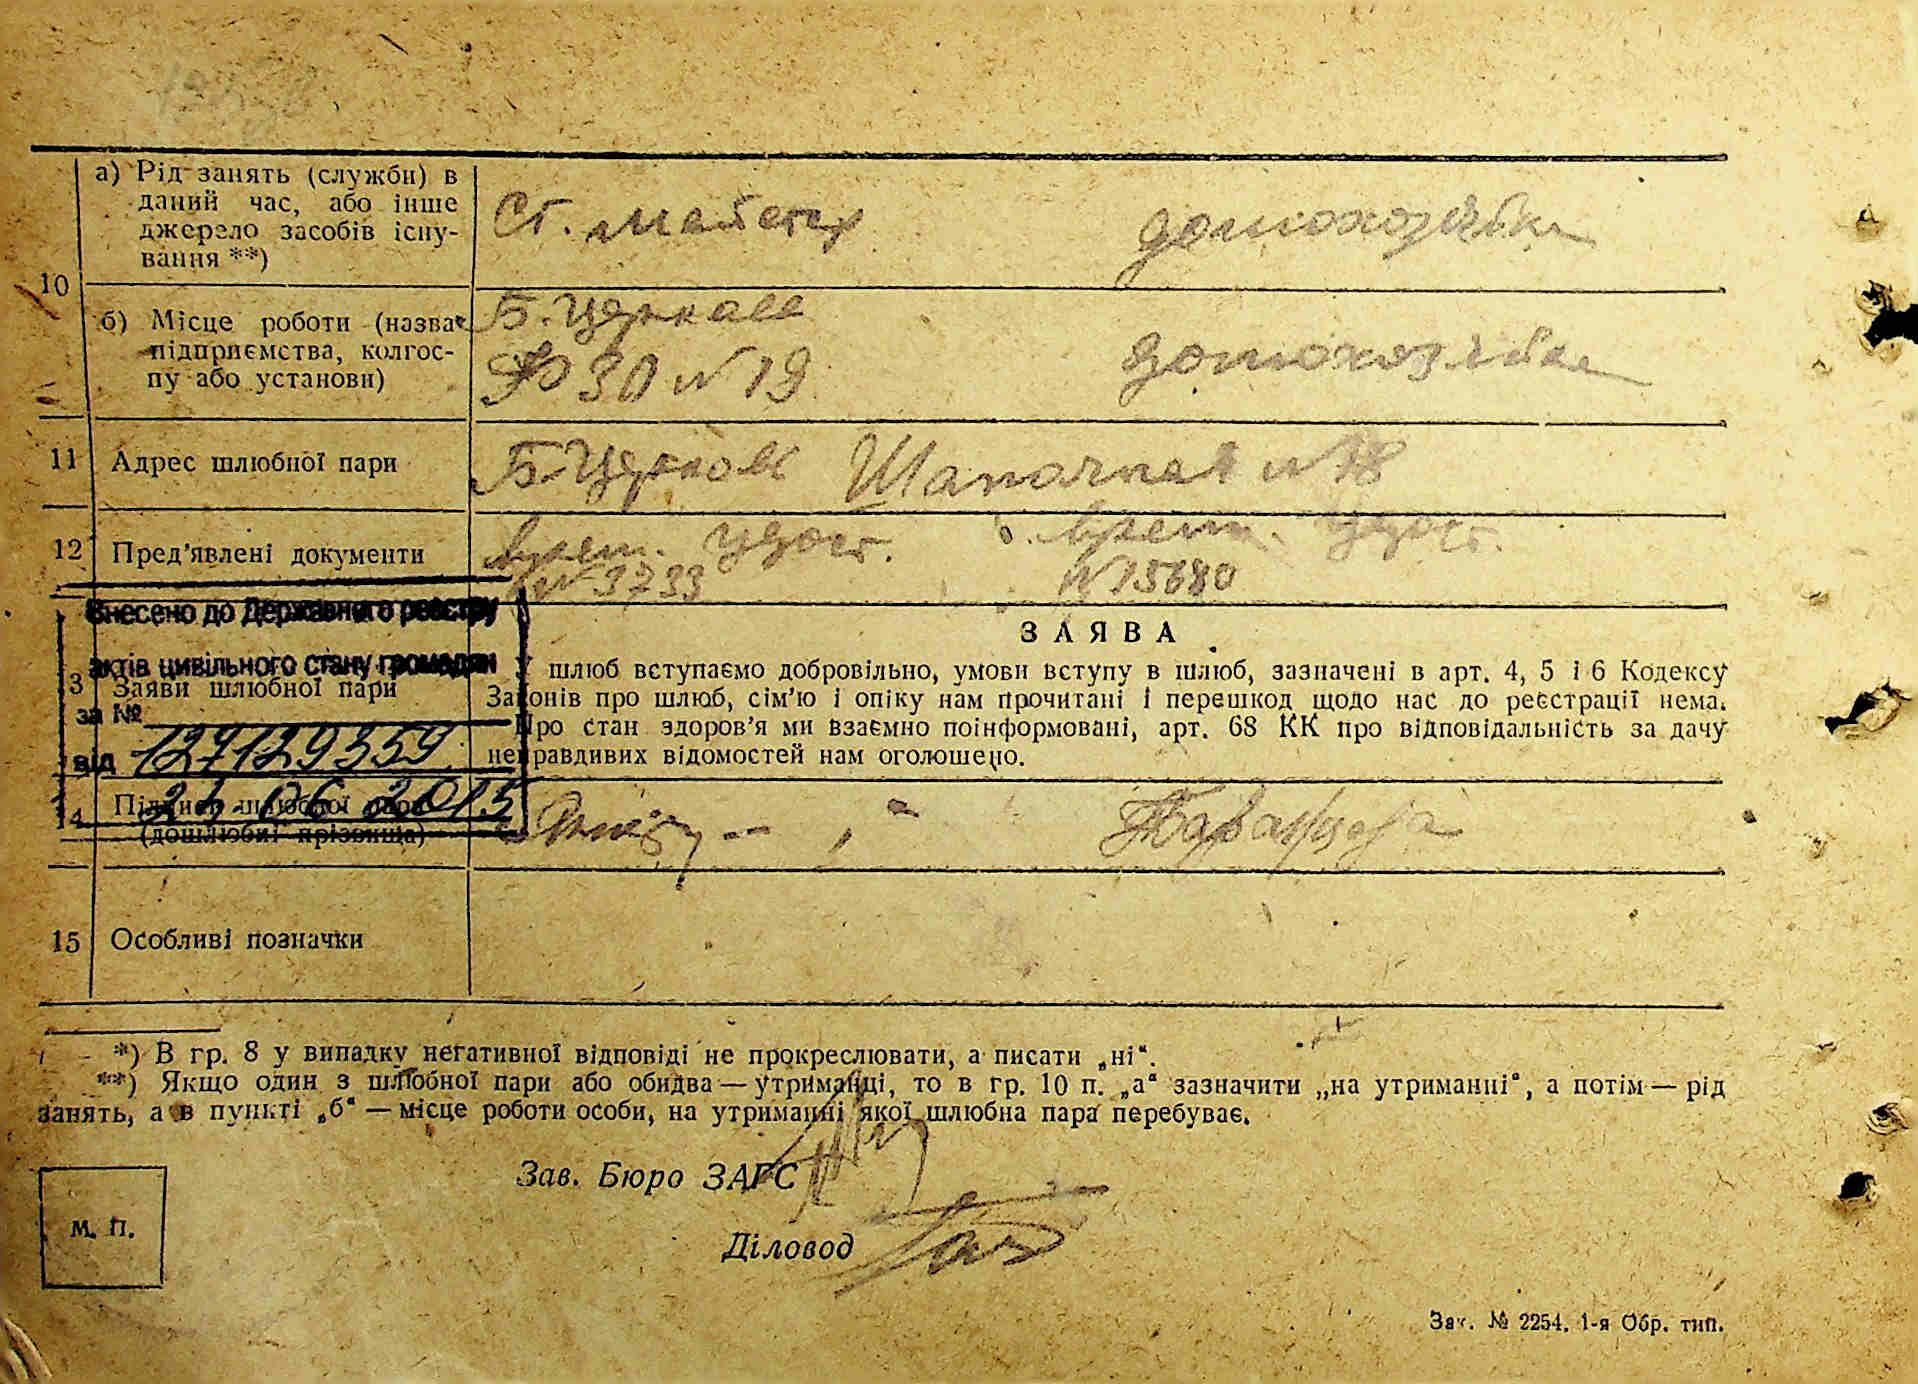 10
а) Рід занять (служби) в
даний час, або інше
джерело засобів існу-
вання **)
Ст.
домохозяйка
б) Місце роботи (назва
підприємства, колгос-
пу або установи)
Б. Церковь
30 № 19
домохозяйка
11
Адрес шлюбної пари
Б. Церковь № 18
12
Пред'явлені документи
Врем. удост.
№ 3733
Врем. удост.
№ 15680
Внесено до Державного реєстру
актів цивільного стану громадян
за №
127129359
від
2015
3
Заяви шлюбної пари
ЗАЯВА
У шлюб вступаємо добровільно, умови вступу в шлюб, зазначені в арт. 4, 5 і 6 Кодексу
Законів про шлюб, сім'ю і опіку нам прочитані і перешкод щодо нас до реєстрації нема.
Про стан здоров'я ми взаємно поінформовані, арт. 68 КК про відповідальність за дачу
неправдивих відомостей нам оголошено.
14
Підписи шлюбної пари
(дошлюбні прізвища)
15
Особливі позначки
*) В гр. 8 у випадку негативної відповіді не прокреслювати, а писати „ні“.
**) Якщо один з шлюбної пари або обидва — утриманці, то в гр. 10 п. „а“ зазначити „на утриманні“, а потім — рід
занять, а в пункті „б“ — місце роботи особи, на утриманні якої шлюбна пара перебуває.
Зав. Бюро ЗАГС
Діловод
М. П.
Зак. № 2254. 1-я Обр. тип.